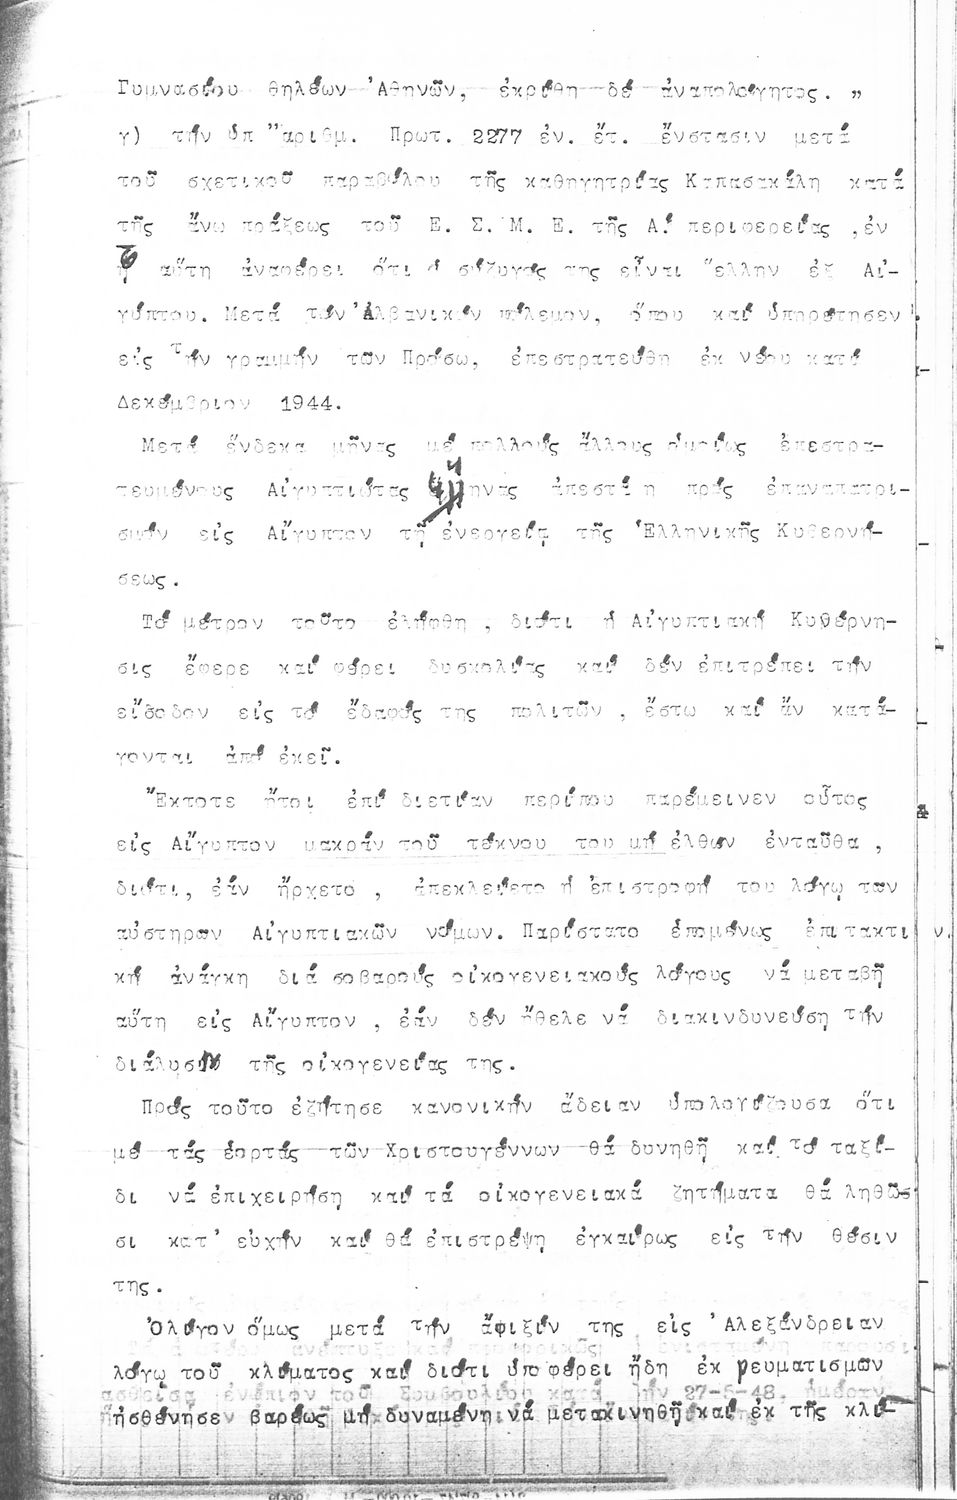 Γυμνασίου θηλέων 'Αθηνῶν, ἐκρίθη δέ ἀναπολόγητος. "
γ) τήν ὑπ "αριθμ. Πρωτ. 2277 ἐν. ἔτ. ἔνστασιν μετά
τοῦ σχετικοῦ παραβόλου τῆς καθηγητρίας Καπασακάλη κατά
τῆς ἄνω πράξεως τοῦ Ε. Σ. Μ. Ε. τῆς Α.' περιφερείας ,ἐν
ᾗ αὕτη ἀναφέρει ὅτι ὁ σύζυγός της εἶναι Ἕλλην ἐξ Αἰ-
γύπτου. Μετά τόν 'Αλβανικόν πόλεμον, ὅπου καί ὑπηρέτησεν
εἰς τήν γραμμήν τῶν Πρόσω, ἐπεστρατεύθη ἐκ νέου κατά
Δεκέμβριον 1944.
Μετά ἕνδεκα μῆνας μέ πολλούς ἄλλους ὁμοίως ἐπεστρα-
τευμένους Αἰγυπτιώτας Ἕλληνας ἀπεστάλη πρός ἐπαναπατρι-
σμόν εἰς Αἴγυπτον τῇ ἐνεργείᾳ τῆς 'Ελληνικῆς Κυβερνή-
σεως.
Τό μέτρον τοῦτο ἐλήφθη , διότι ἡ Αἰγυπτιακή Κυβέρνη-
σις ἔφερε καί φέρει δυσκολίας καί δέν ἐπιτρέπει τήν
εἴσοδον εἰς τό ἔδαφός της πολιτῶν , ἔστω καί ἄν κατά-
γονται ἀπό ἐκεῖ.
Ἔκτοτε ἤτοι ἐπί διετίαν περίπου παρέμεινεν οὗτος
εἰς Αἴγυπτον μακράν τοῦ τέκνου του μή ἐλθών ἐνταῦθα ,
διότι, ἐάν ἤρχετο , ἀπεκλείετο ἡ ἐπιστροφή του λόγῳ τῶν
αὐστηρῶν Αἰγυπτιακῶν νόμων. Παρίστατο ἑπομένως ἐπιτακτι
κή ἀνάγκη διά σοβαρούς οἰκογενειακούς λόγους νά μεταβῇ
αὕτη εἰς Αἴγυπτον , ἐάν δέν ἤθελε νά διακινδυνεύση τήν
διάλυσιν τῆς οἰκογενείας της.
Πρός τοῦτο ἐζήτησε κανονικήν ἄδειαν ὑπολογίζουσα ὅτι
μέ τάς ἑορτάς τῶν Χριστουγέννων θά δυνηθῇ καί τό ταξί-
δι νά ἐπιχειρήση καί τά οἰκογενειακά ζητήματα θά ληθῶσ
σι κατ' εὐχήν καί θά ἐπιστρέψη ἐγκαίρως εἰς τήν θέσιν
της.
Ὀλίγον ὅμως μετά τήν ἄφιξίν της εἰς 'Αλεξάνδρειαν
λόγῳ τοῦ κλίματος καί διότι ὑποφέρει ἤδη ἐκ ρευματισμῶν
ἠσθένησεν βαρέως μή δυναμένη νά μετακινηθῇ καί ἐκ τῆς κλί-